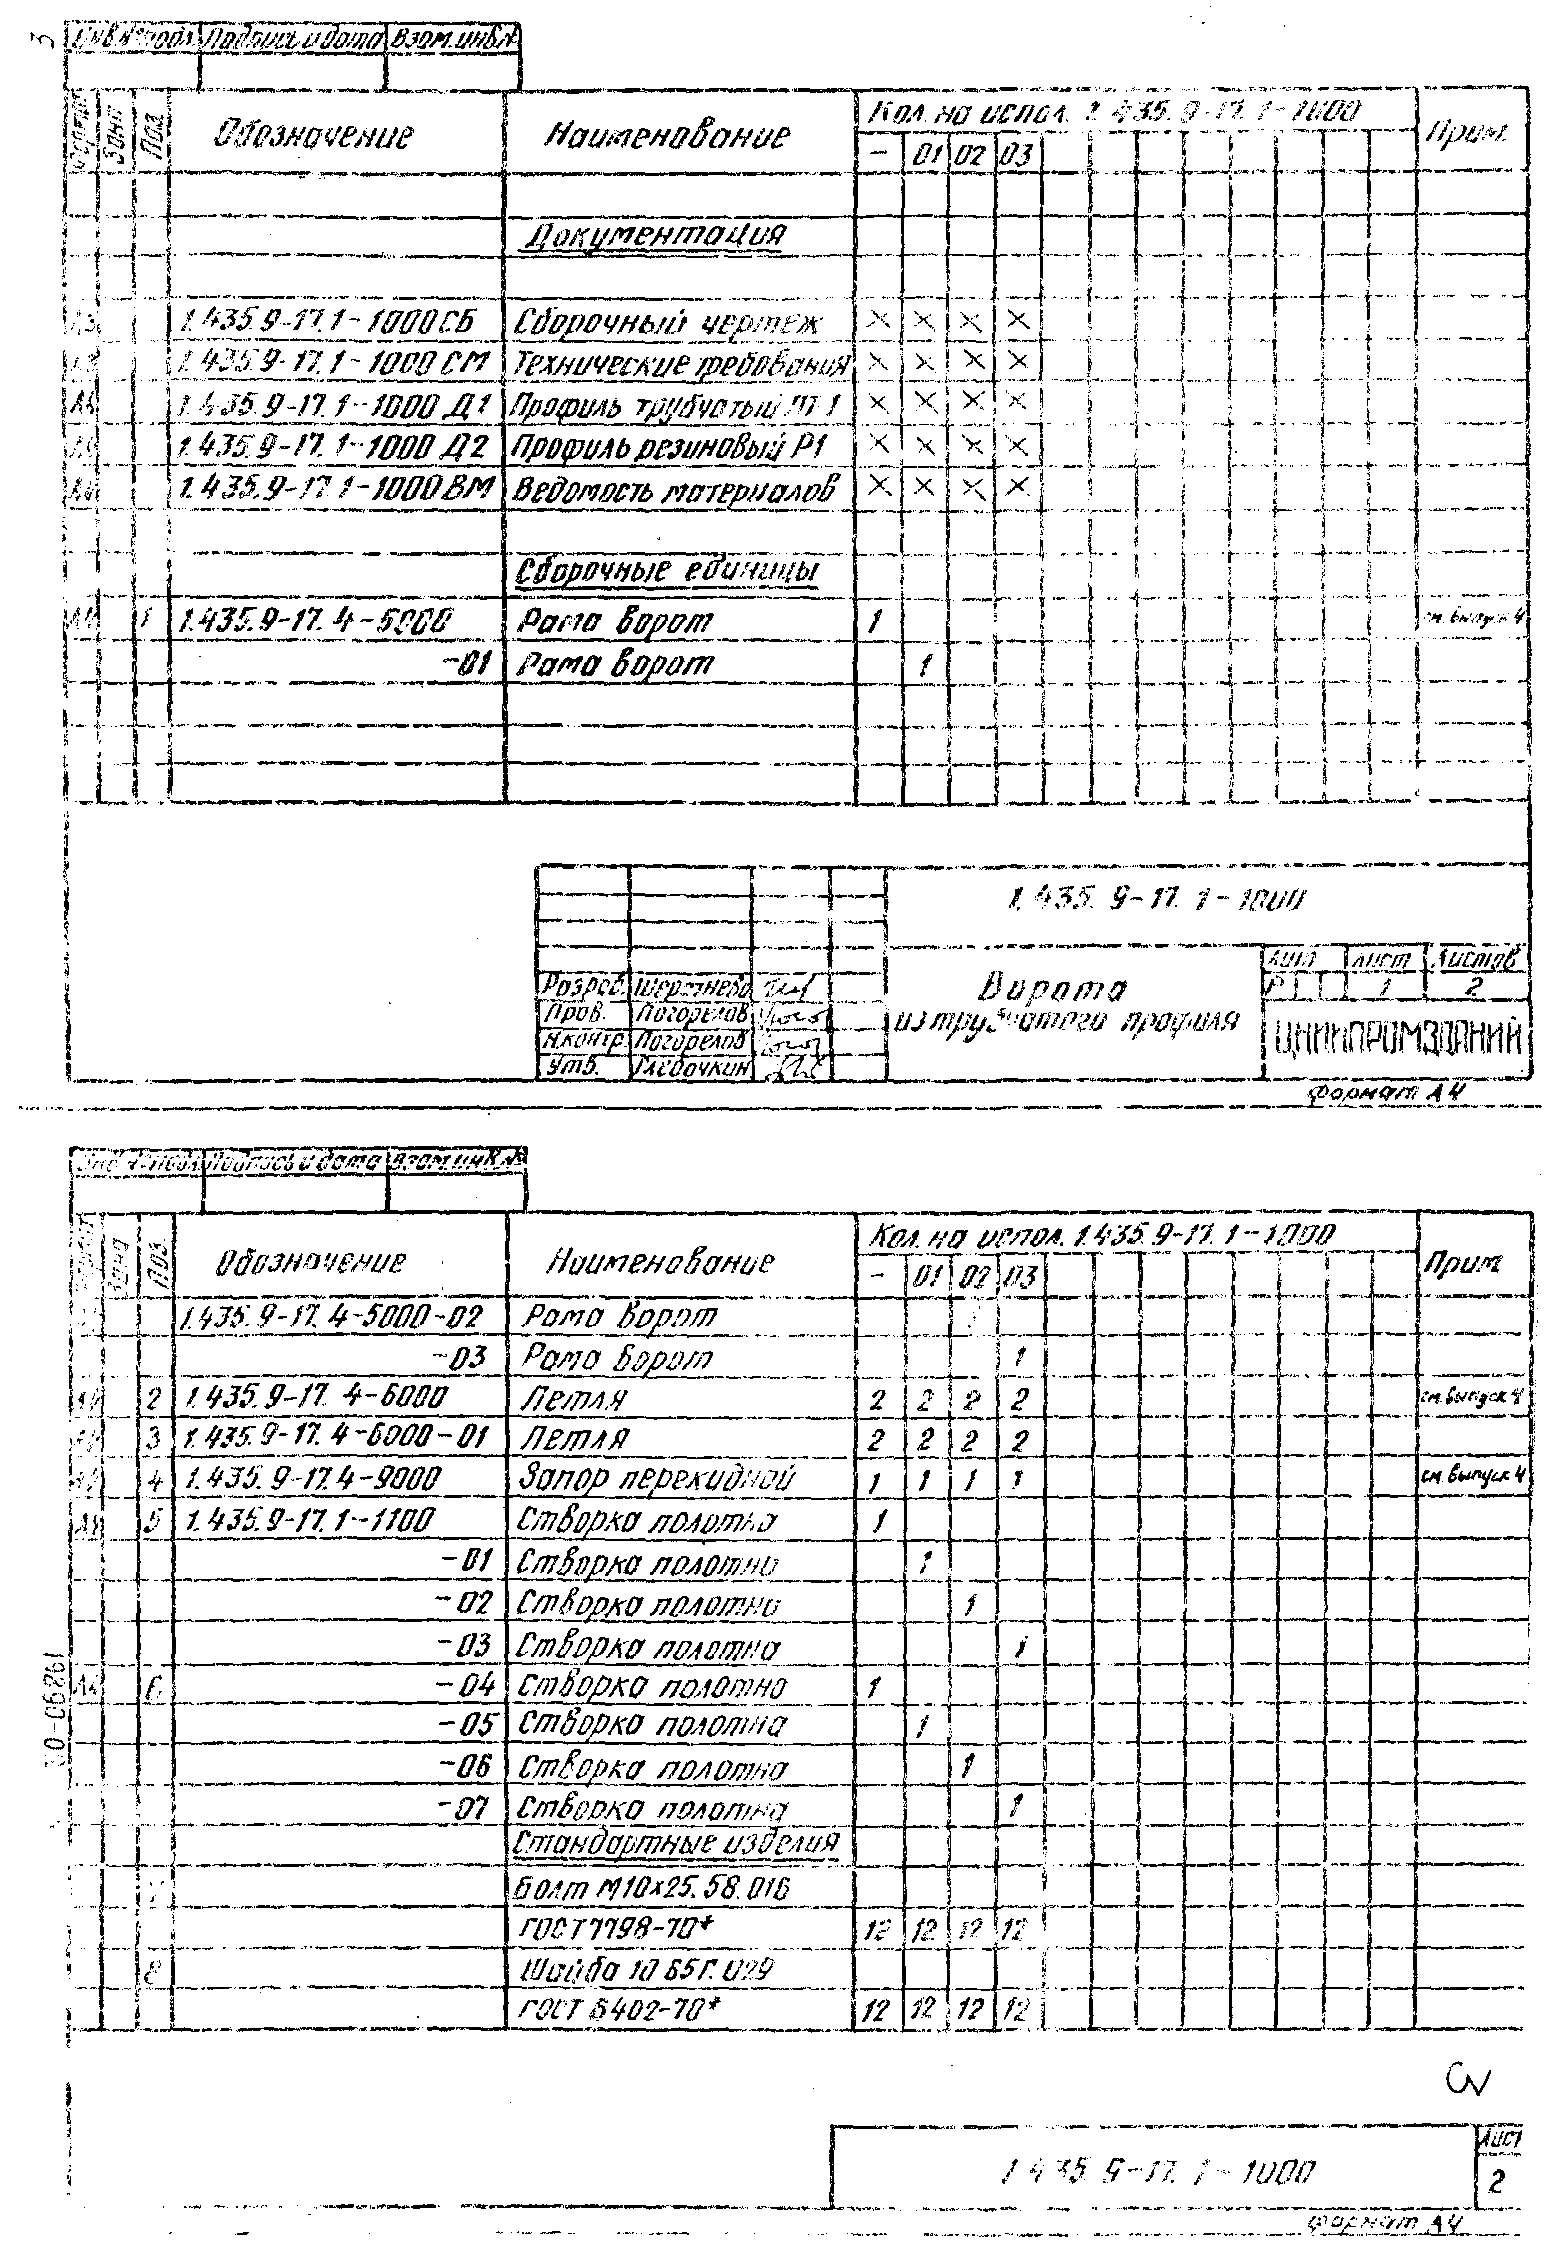 3
Инв.№подл. Подпись и дата Взам.инв.№
Формат Зона Поз. Обозначение Наименование Кол. на испол. 1.435.9-17.1-1000 Прим.
- 01 02 03
Документация
А3 1.435.9-17.1-1000СБ Сборочный чертеж × × × ×
1.435.9-17.1-1000 СМ Технические требования × × × ×
А4 1.435.9-17.1-1000 Д1 Профиль трубчатый ПТ-1 × × × ×
А4 1.435.9-17.1-1000 Д2 Профиль резиновый Р1 × × × ×
А4 1.435.9-17.1-1000ВМ Ведомость материалов × × × ×
Сборочные единицы
А4 1 1.435.9-17.4-5000 Рама ворот 1 см. выпуск 4
-01 Рама ворот 1
1.435.9-17.1-1000
Разраб. Шерстнева
Пров. Погорелов
Н.контр. Погорелов
Утв. Глебочкин
Ворота
из трубчатого профиля
Лит. Лист Листов
Р 1 2
ЦНИИПРОМЗДАНИЙ
Формат А4
Инв.№подл. Подпись и дата Взам.инв.№
Формат Зона Поз. Обозначение Наименование Кол. на испол. 1.435.9-17.1-1000 Прим.
- 01 02 03
1.435.9-17.4-5000-02 Рама ворот 1
-03 Рама ворот 1
А4 2 1.435.9-17.4-6000 Петля 2 2 2 2 см. выпуск 4
А4 3 1.435.9-17.4-6000-01 Петля 2 2 2 2
А4 4 1.435.9-17.4-9000 Запор перекидной 1 1 1 1 см. выпуск 4
А4 5 1.435.9-17.1-1100 Створка полотна 1
-01 Створка полотна 1
-02 Створка полотна 1
-03 Створка полотна 1
А4 6 -04 Створка полотна 1
-05 Створка полотна 1
-06 Створка полотна 1
-07 Створка полотна 1
Стандартные изделия
Болт М10×25.58.016
ГОСТ 7798-70* 12 12 12 12
8 Шайба 10 65Г.029
ГОСТ 6402-70* 12 12 12 12
1.435.9-17.1-1000
Лист
2
Формат А4